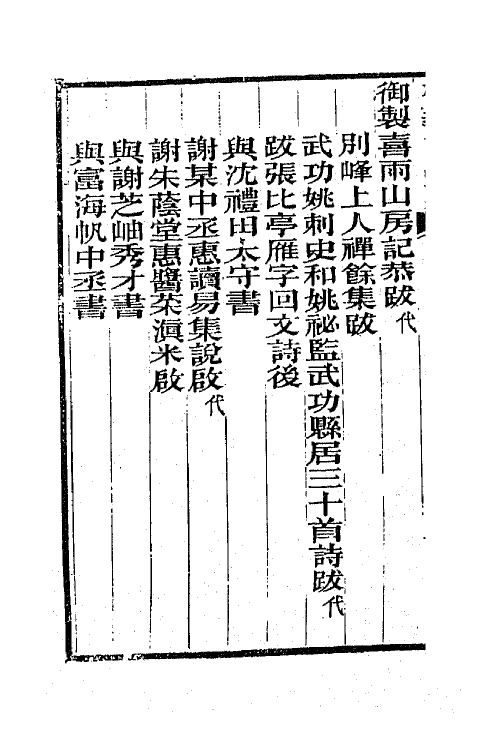 御製喜雨山房記恭跋代
別峰上人禪餘集跋
武功姚刺史和姚祕監武功縣居三十首詩跋代
跋張比亭雁字回文詩後
與沈禮田太守書
謝某中丞惠讀易集說啟代
謝朱蔭堂惠醬茶滇米啟
與謝芝岫秀才書
與富海帆中丞書